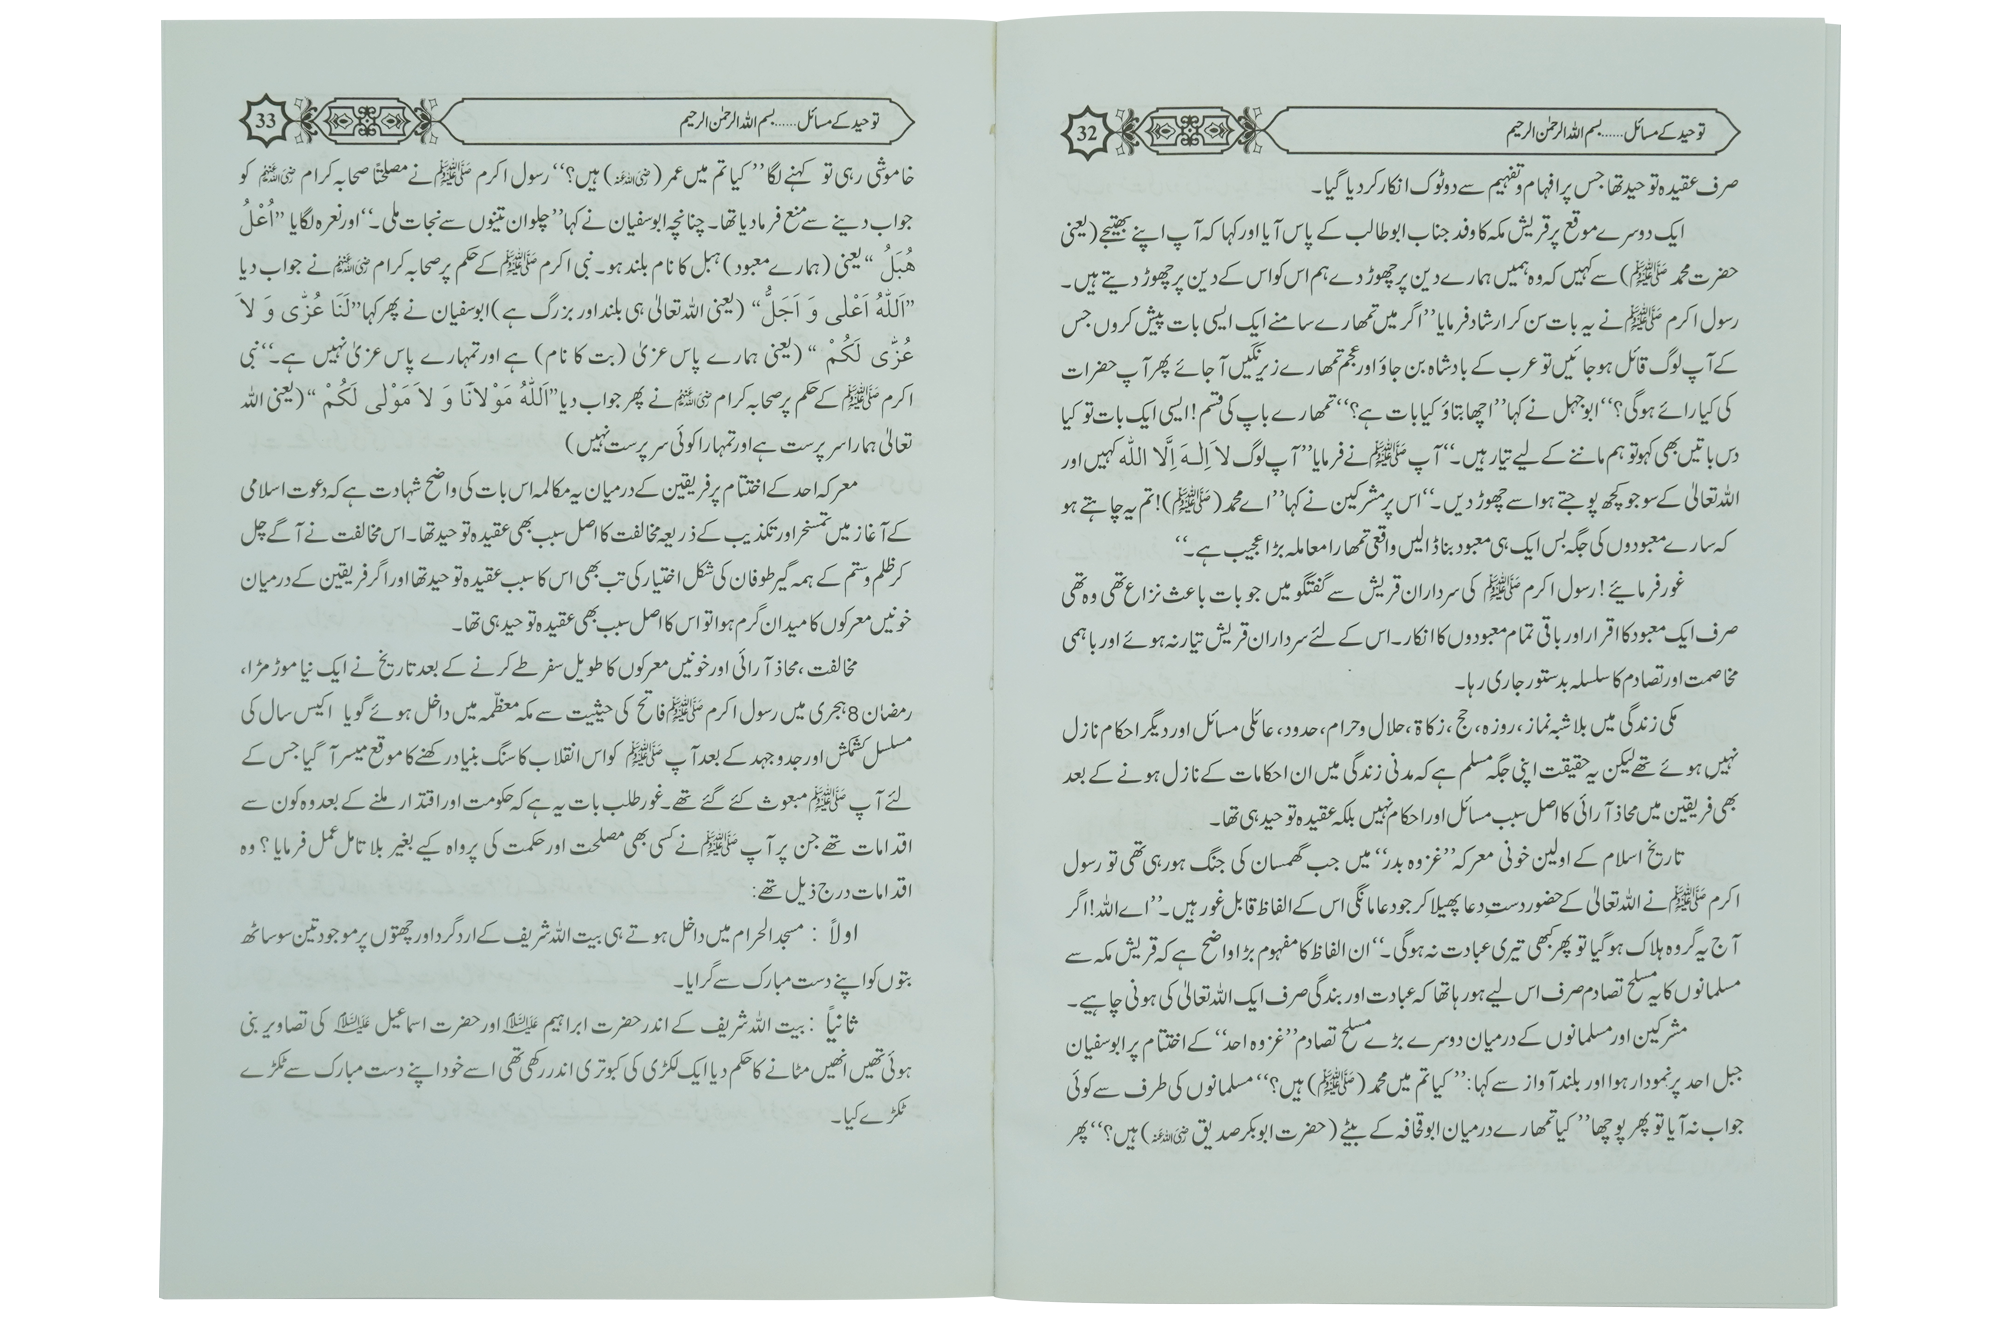 توحید کے مسائل......بسم اللہ الرحمٰن الرحیم
32
صرف عقیدہ توحید تھا جس پر افہام وتفہیم سے دوٹوک انکار کر دیا گیا۔
ایک دوسرے موقع پر قریش مکہ کا وفد جناب ابوطالب کے پاس آیا اور کہا کہ آپ اپنے بھتیجے (یعنی
حضرت محمد ﷺ) سے کہیں کہ وہ ہمیں ہمارے دین پر چھوڑ دے ہم اس کو اس کے دین پر چھوڑ دیتے ہیں۔
رسول اکرم ﷺ نے یہ بات سن کر ارشاد فرمایا ’’اگر میں تمہارے سامنے ایک ایسی بات پیش کروں جس
کے آپ لوگ قائل ہو جائیں تو عرب کے بادشاہ بن جاؤ اور عجم تمھارے زیرنگیں آ جائے پھر آپ حضرات
کی کیا رائے ہوگی؟‘‘ ابوجہل نے کہا ’’اچھا بتاؤ کیا بات ہے؟‘‘ تمھارے باپ کی قسم! ایسی ایک بات تو کیا
دس باتیں بھی کہو تو ہم ماننے کے لیے تیار ہیں۔‘‘ آپ ﷺ نے فرمایا ’’آپ لوگ لاَ اِلٰـہَ اِلَّا اللہ کہیں اور
اللہ تعالیٰ کے سوا جو کچھ پوجتے ہو اسے چھوڑ دیں۔‘‘ اس پر مشرکین نے کہا ’’اے محمد (ﷺ)! تم یہ چاہتے ہو
کہ سارے معبودوں کی جگہ بس ایک ہی معبود بنا ڈالیں واقعی تمھارا معاملہ بڑا عجیب ہے۔‘‘
غور فرمائیے! رسول اکرم ﷺ کی سرداران قریش سے گفتگو میں جو بات باعث نزاع تھی وہ تھی
صرف ایک معبود کا اقرار اور باقی تمام معبودوں کا انکار۔ اس کے لئے سرداران قریش تیار نہ ہوئے اور باہمی
مخاصمت اور تصادم کا سلسلہ بدستور جاری رہا۔
مکی زندگی میں بلا شبہ نماز، روزہ، حج، زکاۃ، حلال وحرام، حدود، عائلی مسائل اور دیگر احکام نازل
نہیں ہوئے تھے لیکن یہ حقیقت اپنی جگہ مسلم ہے کہ مدنی زندگی میں ان احکامات کے نازل ہونے کے بعد
بھی فریقین میں محاذ آرائی کا اصل سبب مسائل اور احکام نہیں بلکہ عقیدہ توحید ہی تھا۔
تاریخ اسلام کے اولین خونی معرکہ ’’غزوہ بدر‘‘ میں جب گھمسان کی جنگ ہو رہی تھی تو رسول
اکرم ﷺ نے اللہ تعالیٰ کے حضور دستِ دعا پھیلا کر جو دعا مانگی اس کے الفاظ قابل غور ہیں۔ ’’اے اللہ! اگر
آج یہ گروہ ہلاک ہوگیا تو پھر کبھی تیری عبادت نہ ہوگی۔‘‘ ان الفاظ کا مفہوم بڑا واضح ہے کہ قریش مکہ سے
مسلمانوں کا یہ مسلح تصادم صرف اس لیے ہو رہا تھا کہ عبادت اور بندگی صرف ایک اللہ تعالیٰ کی ہونی چاہیے۔
مشرکین اور مسلمانوں کے درمیان دوسرے بڑے مسلح تصادم ’’غزوہ احد‘‘ کے اختتام پر ابوسفیان
جبل احد پر نمودار ہوا اور بلند آواز سے کہا: ’’کیا تم میں محمد (ﷺ) ہیں؟‘‘ مسلمانوں کی طرف سے کوئی
جواب نہ آیا تو پھر پوچھا ’’کیا تمھارے درمیان ابوقحافہ کے بیٹے (حضرت ابوبکر صدیق رضی اللہ عنہ) ہیں؟‘‘ پھر
توحید کے مسائل......بسم اللہ الرحمٰن الرحیم
33
خاموشی رہی تو کہنے لگا ’’کیا تم میں عمر (رضی اللہ عنہ) ہیں؟‘‘ رسول اکرم ﷺ نے مصلحتاً صحابہ کرام رضی اللہ عنہم کو
جواب دینے سے منع فرما دیا تھا۔ چنانچہ ابوسفیان نے کہا ’’چلو ان تینوں سے نجات ملی۔‘‘ اور نعرہ لگایا ’’اُعْلُ
ھُبَلُ‘‘ یعنی (ہمارے معبود) ہبل کا نام بلند ہو۔ نبی اکرم ﷺ کے حکم پر صحابہ کرام رضی اللہ عنہم نے جواب دیا
’’اَللّٰہُ اَعْلٰی وَ اَجَلُّ‘‘ (یعنی اللہ تعالیٰ ہی بلند اور بزرگ ہے) ابوسفیان نے پھر کہا ’’لَنَا عُزّٰی وَ لاَ
عُزّٰی لَکُمْ‘‘ (یعنی ہمارے پاس عزیٰ (بت کا نام) ہے اور تمہارے پاس عزیٰ نہیں ہے۔‘‘ نبی
اکرم ﷺ کے حکم پر صحابہ کرام رضی اللہ عنہم نے پھر جواب دیا ’’اَللّٰہُ مَوْلاَنَا وَ لاَ مَوْلٰی لَکُمْ‘‘ (یعنی اللہ
تعالیٰ ہمارا سرپرست ہے اور تمہارا کوئی سرپرست نہیں)
معرکہ احد کے اختتام پر فریقین کے درمیان یہ مکالمہ اس بات کی واضح شہادت ہے کہ دعوت اسلامی
کے آغاز میں تمسخر اور تکذیب کے ذریعہ مخالفت کا اصل سبب بھی عقیدہ توحید تھا۔ اس مخالفت نے آگے چل
کر ظلم وستم کے ہمہ گیر طوفان کی شکل اختیار کی تب بھی اس کا سبب عقیدہ توحید تھا اور اگر فریقین کے درمیان
خونیں معرکوں کا میدان گرم ہوا تو اس کا اصل سبب بھی عقیدہ توحید ہی تھا۔
مخالفت، محاذ آرائی اور خونیں معرکوں کا طویل سفر طے کرنے کے بعد تاریخ نے ایک نیا موڑ مڑا،
رمضان 8 ہجری میں رسول اکرم ﷺ فاتح کی حیثیت سے مکہ معظّمہ میں داخل ہوئے گویا اکیس سال کی
مسلسل کشمکش اور جدوجہد کے بعد آپ ﷺ کو اس انقلاب کا سنگ بنیاد رکھنے کا موقع میسر آ گیا جس کے
لئے آپ ﷺ مبعوث کئے گئے تھے۔ غور طلب بات یہ ہے کہ حکومت اور اقتدار ملنے کے بعد وہ کون سے
اقدامات تھے جن پر آپ ﷺ نے کسی بھی مصلحت اور حکمت کی پرواہ کیے بغیر بلا تامل عمل فرمایا؟ وہ
اقدامات درج ذیل تھے:
اولاً : مسجد الحرام میں داخل ہوتے ہی بیت اللہ شریف کے اردگرد اور چھتوں پر موجود تین سو ساٹھ
بتوں کو اپنے دست مبارک سے گرایا۔
ثانیاً : بیت اللہ شریف کے اندر حضرت ابراہیم علیہ السلام اور حضرت اسماعیل علیہ السلام کی تصاویر بنی
ہوئی تھیں انھیں مٹانے کا حکم دیا ایک لکڑی کی کبوتری اندر رکھی تھی اسے خود اپنے دست مبارک سے ٹکڑے
ٹکڑے کیا۔